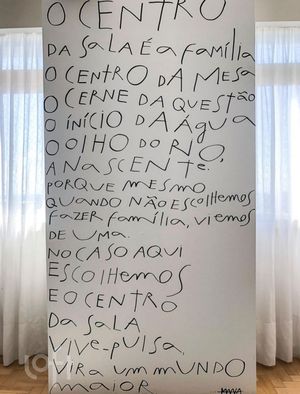 O CENTRO
DA SALA É A FAMÍLIA
O CENTRO DA MESA
O CERNE DA QUESTÃO
O INÍCIO DA ÁGUA
O OLHO DO RIO,
A NASCENTE.
PORQUE MESMO
QUANDO NÃO ESCOLHEMOS
FAZER FAMÍLIA, VIEMOS
DE UMA.
NO CASO AQUI
ESCOLHEMOS
E O CENTRO
DA SALA
VIVE-PULSA,
VIRA UM MUNDO
MAIOR